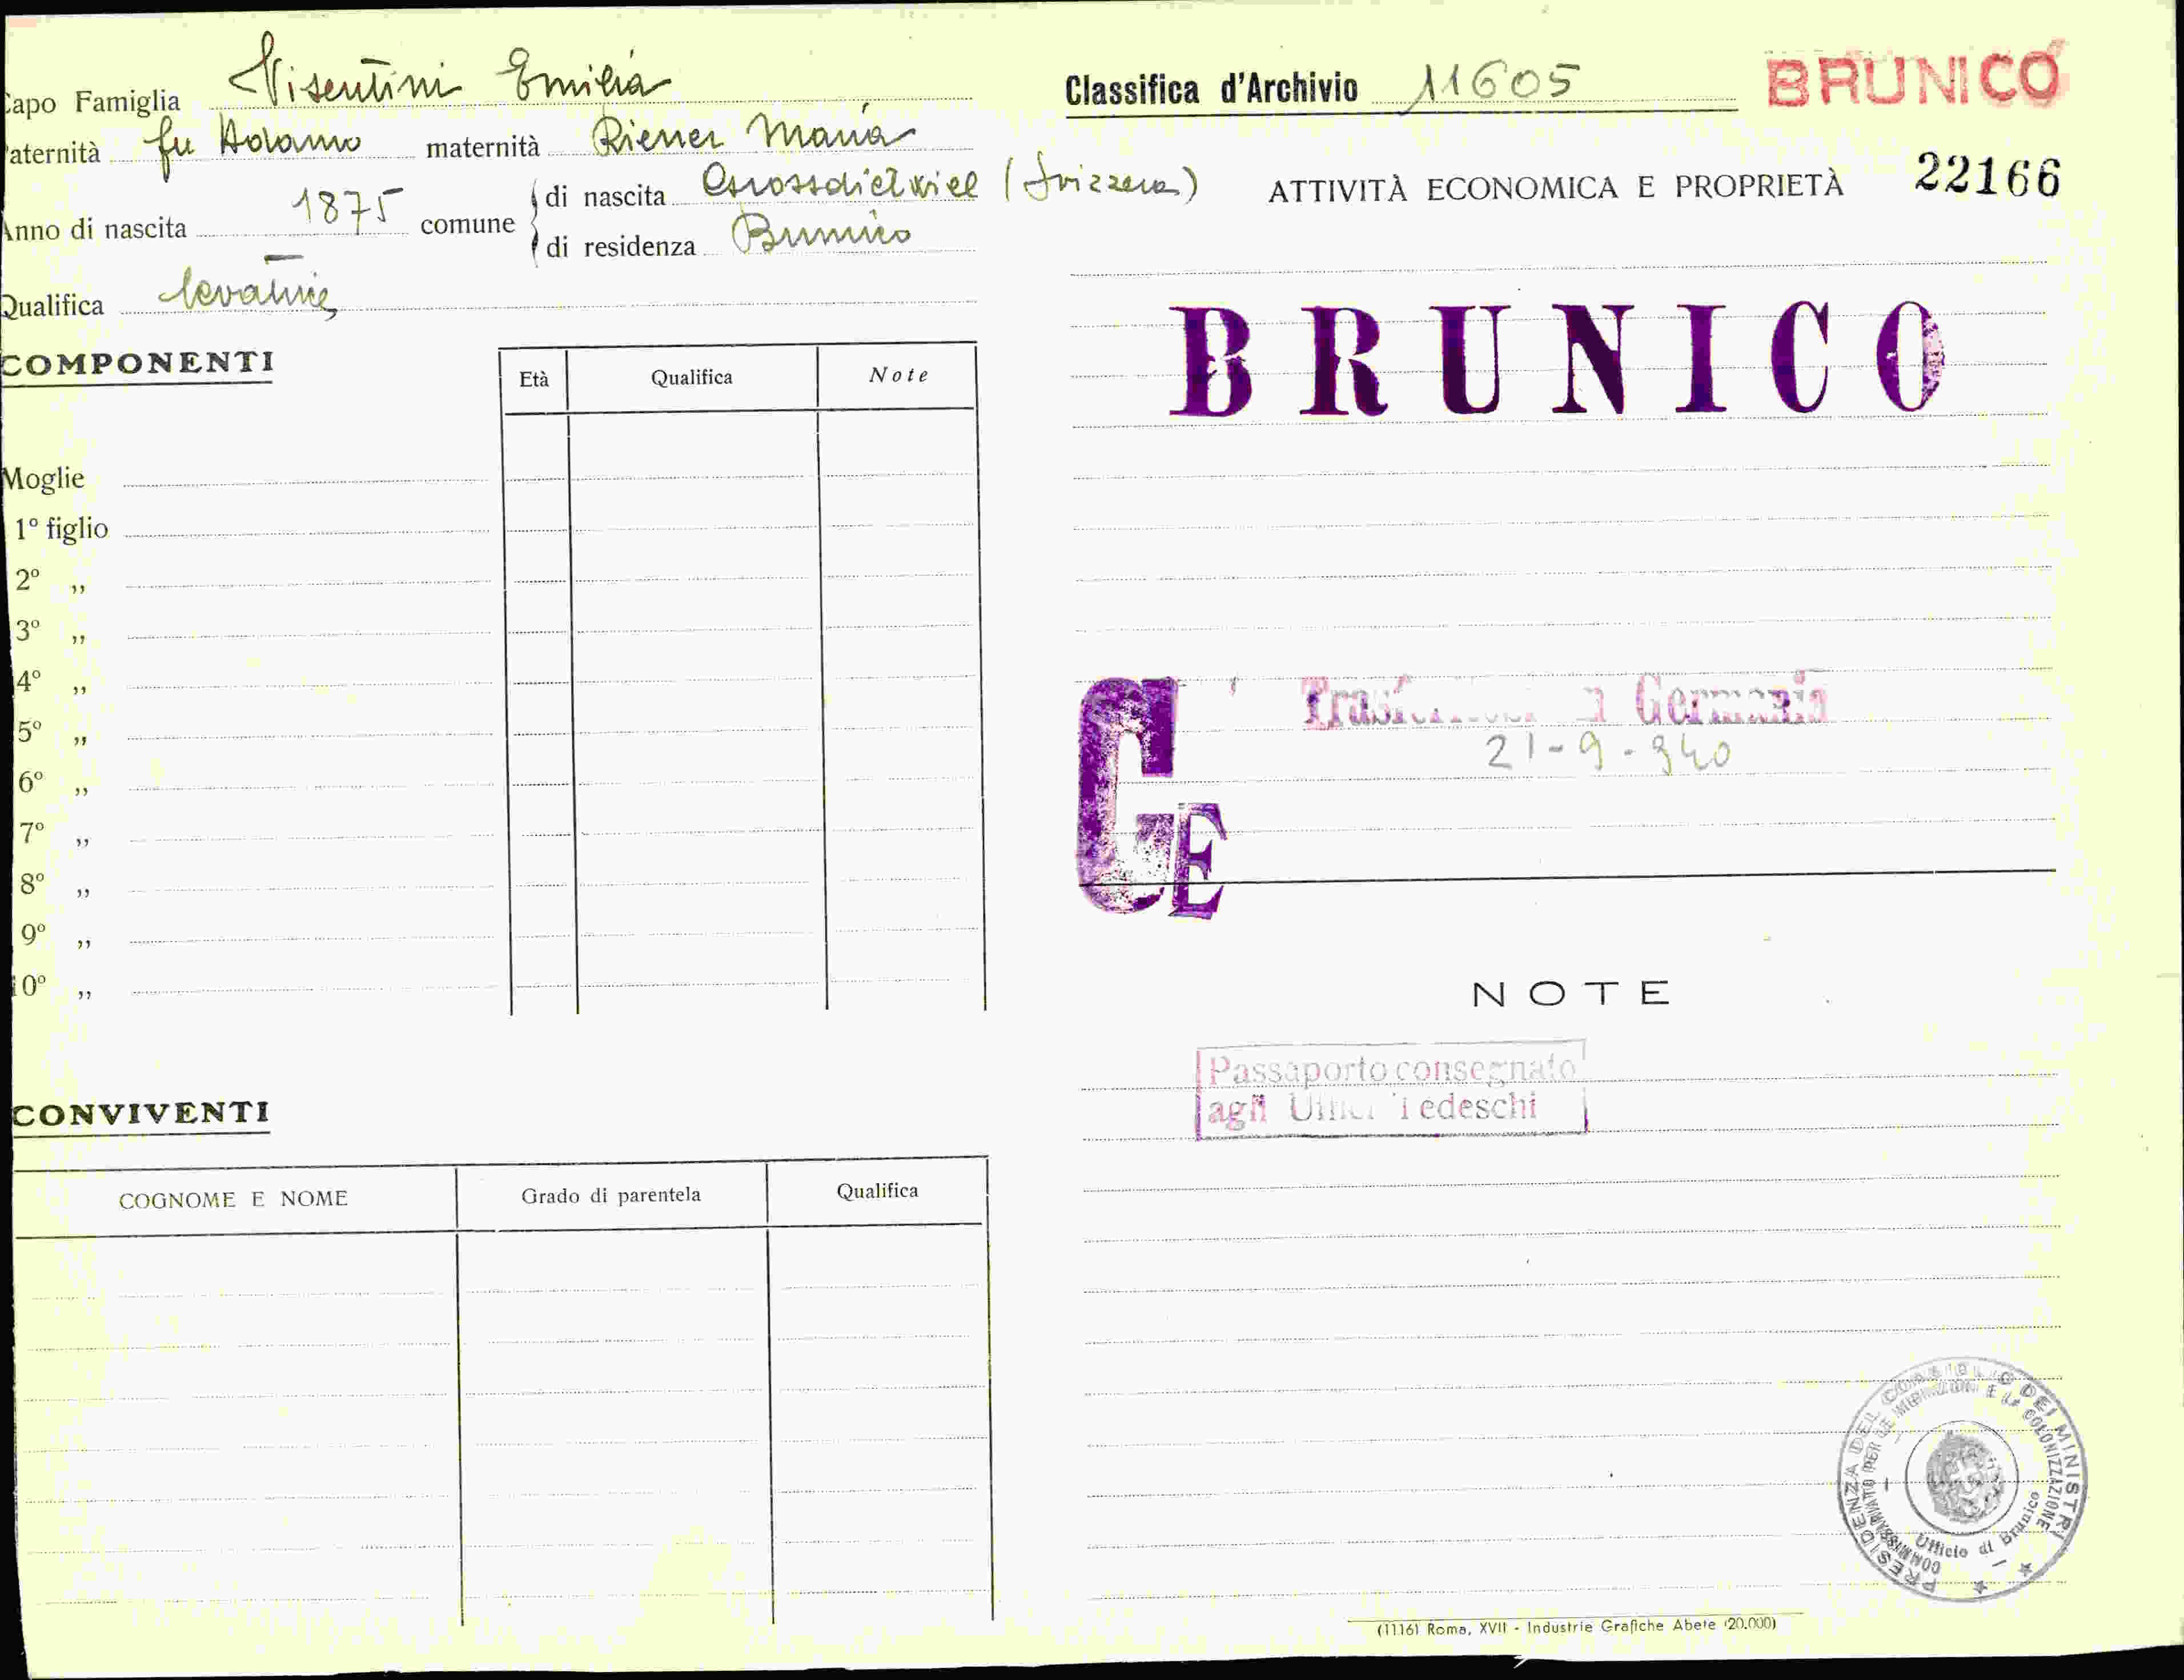 Capo Famiglia Visentini Emilia
Paternità fu Adamo maternità Riener Maria
Anno di nascita 1875 comune
di nascita Grossdietwiel (Svizzera)
di residenza Brunico
Qualifica levatrice
COMPONENTI
Età Qualifica Note
Moglie
1º figlio
2º ,,
3º ,,
4º ,,
5º ,,
6º ,,
7º ,,
8º ,,
9º ,,
10º ,,
CONVIVENTI
COGNOME E NOME Grado di parentela Qualifica
Classifica d'Archivio 11605
BRUNICO
ATTIVITÀ ECONOMICA E PROPRIETÀ 22166
BRUNICO
Germania
21-9-940
GE
NOTE
Passaporto consegnato
agli Uffici Tedeschi
PRESIDENZA DEL CONSIGLIO DEI MINISTRI
COMMISSARIATO PER LE MIGRAZIONI E LA COLONIZZAZIONE
Ufficio di Brunico
(1116) Roma, XVII - Industrie Grafiche Abete (20.000)